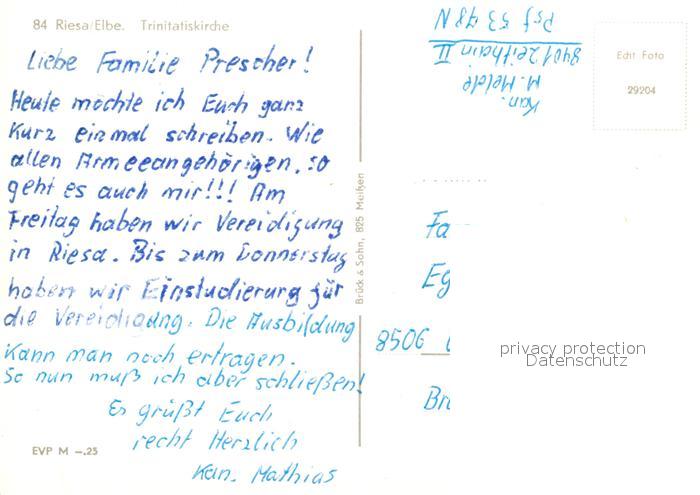 84 Riesa/Elbe. Trinitatiskirche
Liebe Familie Prescher!
Heute möchte ich Euch ganz
Kurz einmal schreiben. Wie
allen Armeeangehörigen, so
geht es auch mir!!! Am
Freitag haben wir Vereidigung
in Riesa. Bis zum Donnerstag
haben wir Einstudierung für
die Vereidigung. Die Ausbildung
kann man noch ertragen.
So nun muß ich aber schließen!
Es grüßt Euch
recht Herzlich
Kan. Mathias
EVP M –.25
Brück & Sohn, 825 Meißen
Kan.
M. Melde
8401 Zeithain II
Psf 53 48 N
Echt Foto
29204
Fa
Eg
8506
Br
privacy protection
Datenschutz